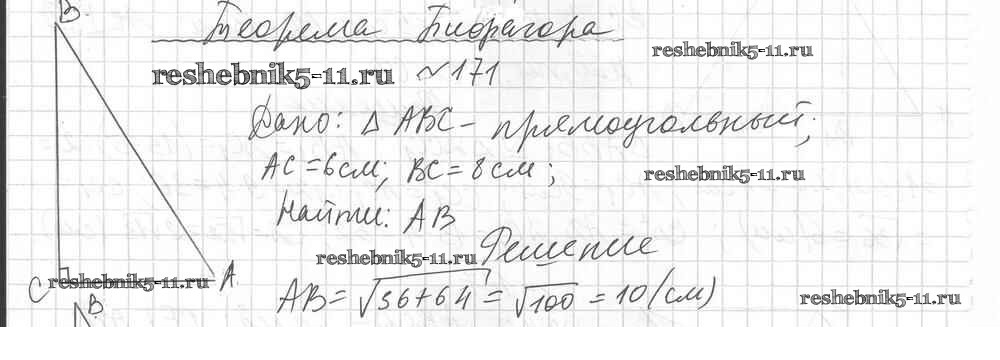 B
Теорема Пифагора
reshebnik5-11.ru
reshebnik5-11.ru ~171
Дано: △ ABC - прямоугольный;
AC = 6см; BC = 8см;
reshebnik5-11.ru
Найти: AB
Решение
reshebnik5-11.ru
C reshebnik5-11.ru A.
AB = √36+64 = √100 = 10 (см)
reshebnik5-11.ru
B